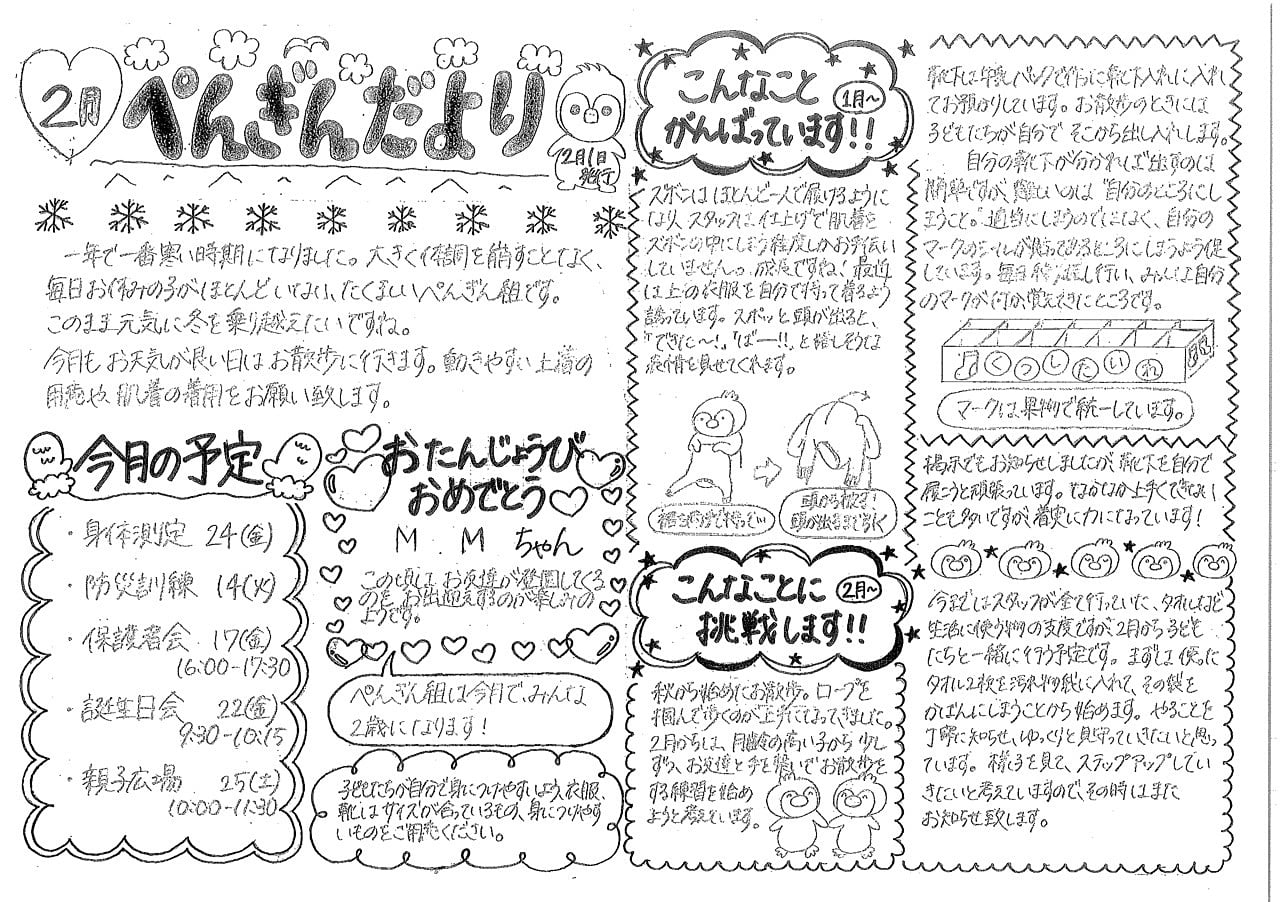 2月
ぺんぎんだより
2月1日
発行
一年で一番寒い時期になりました。大きく体調を崩すことなく、
毎日お休みの子がほとんどいない、たくましいぺんぎん組です。
このまま元気に冬を乗り越えたいですね。
今月もお天気が良い日はお散歩に行きます。動きやすい上着の
用意や、肌着の着用をお願い致します。
今月の予定
・身体測定 24(金)
・防災訓練 14(火)
・保護者会 17(金)
16:00-17:30
・誕生日会 22(金)
9:30-10:15
・親子広場 25(土)
10:00-11:30
おたんじょうび
おめでとう
M.Mちゃん
この頃は、お友達が登園してくる
のを、お出迎えするのが楽しみの
ようです。
ぺんぎん組は今月で、みんな
2歳になります!
子どもたちが自分で身につけやすいよう、衣服、
靴はサイズが合っているもの、身につけやす
いものをご用意ください。
こんなこと
1月〜
がんばっています!!
ズボンはほとんど一人で履けるように
なり、スタッフは仕上げで肌着を
ズボンの中にしまう程度しかお手伝い
していません。成長ですね、最近
は上の衣服を自分で持って着るよう
誘っています。スポッと頭が出ると、
"できた〜!""ばー!!"と嬉しそうな
表情を見せてくれます。
裾を両手で持って
頭からかぶり
頭が出るまで引く
こんなことに
2月〜
挑戦します!!
秋から始めたお散歩。ロープを
掴んで歩くのが上手になってきました。
2月からは、月齢の高い子から少し
ずつ、お友達と手を繋いでお散歩を
する練習を始め
ようと考えています。
靴下は牛乳パックで作った靴下入れに入れ
てお預かりしています。お散歩のときには
子どもたちが自分でそこから出し入れします。
自分の靴下が分かれば出すのは
簡単ですが、難しいのは"自分のところにし
まうこと。"適当にしまうのではなく、自分の
マークのシールが貼ってあるところにしまうよう促
しています。毎日繰り返し行い、みんな自分
のマークが何か覚えてきたところです。
くつしたいれ
マークは果物で統一しています。
掲示でもお知らせしましたが、靴下を自分で
履こうと頑張っています。なかなか上手くできない
ことも多いですが、着実に力になっています!
今まではスタッフが全て行っていた、タオルなど
生活に使う物の支度ですが、2月から子ども
たちと一緒に行う予定です。まずは使った
タオル2枚を汚れ物袋に入れて、その袋を
かばんにしまうことから始めます。やることを
丁寧に知らせ、ゆっくりと見守っていきたいと思っ
ています。様子を見て、ステップアップしてい
きたいと考えていますので、その時にはまた
お知らせ致します。